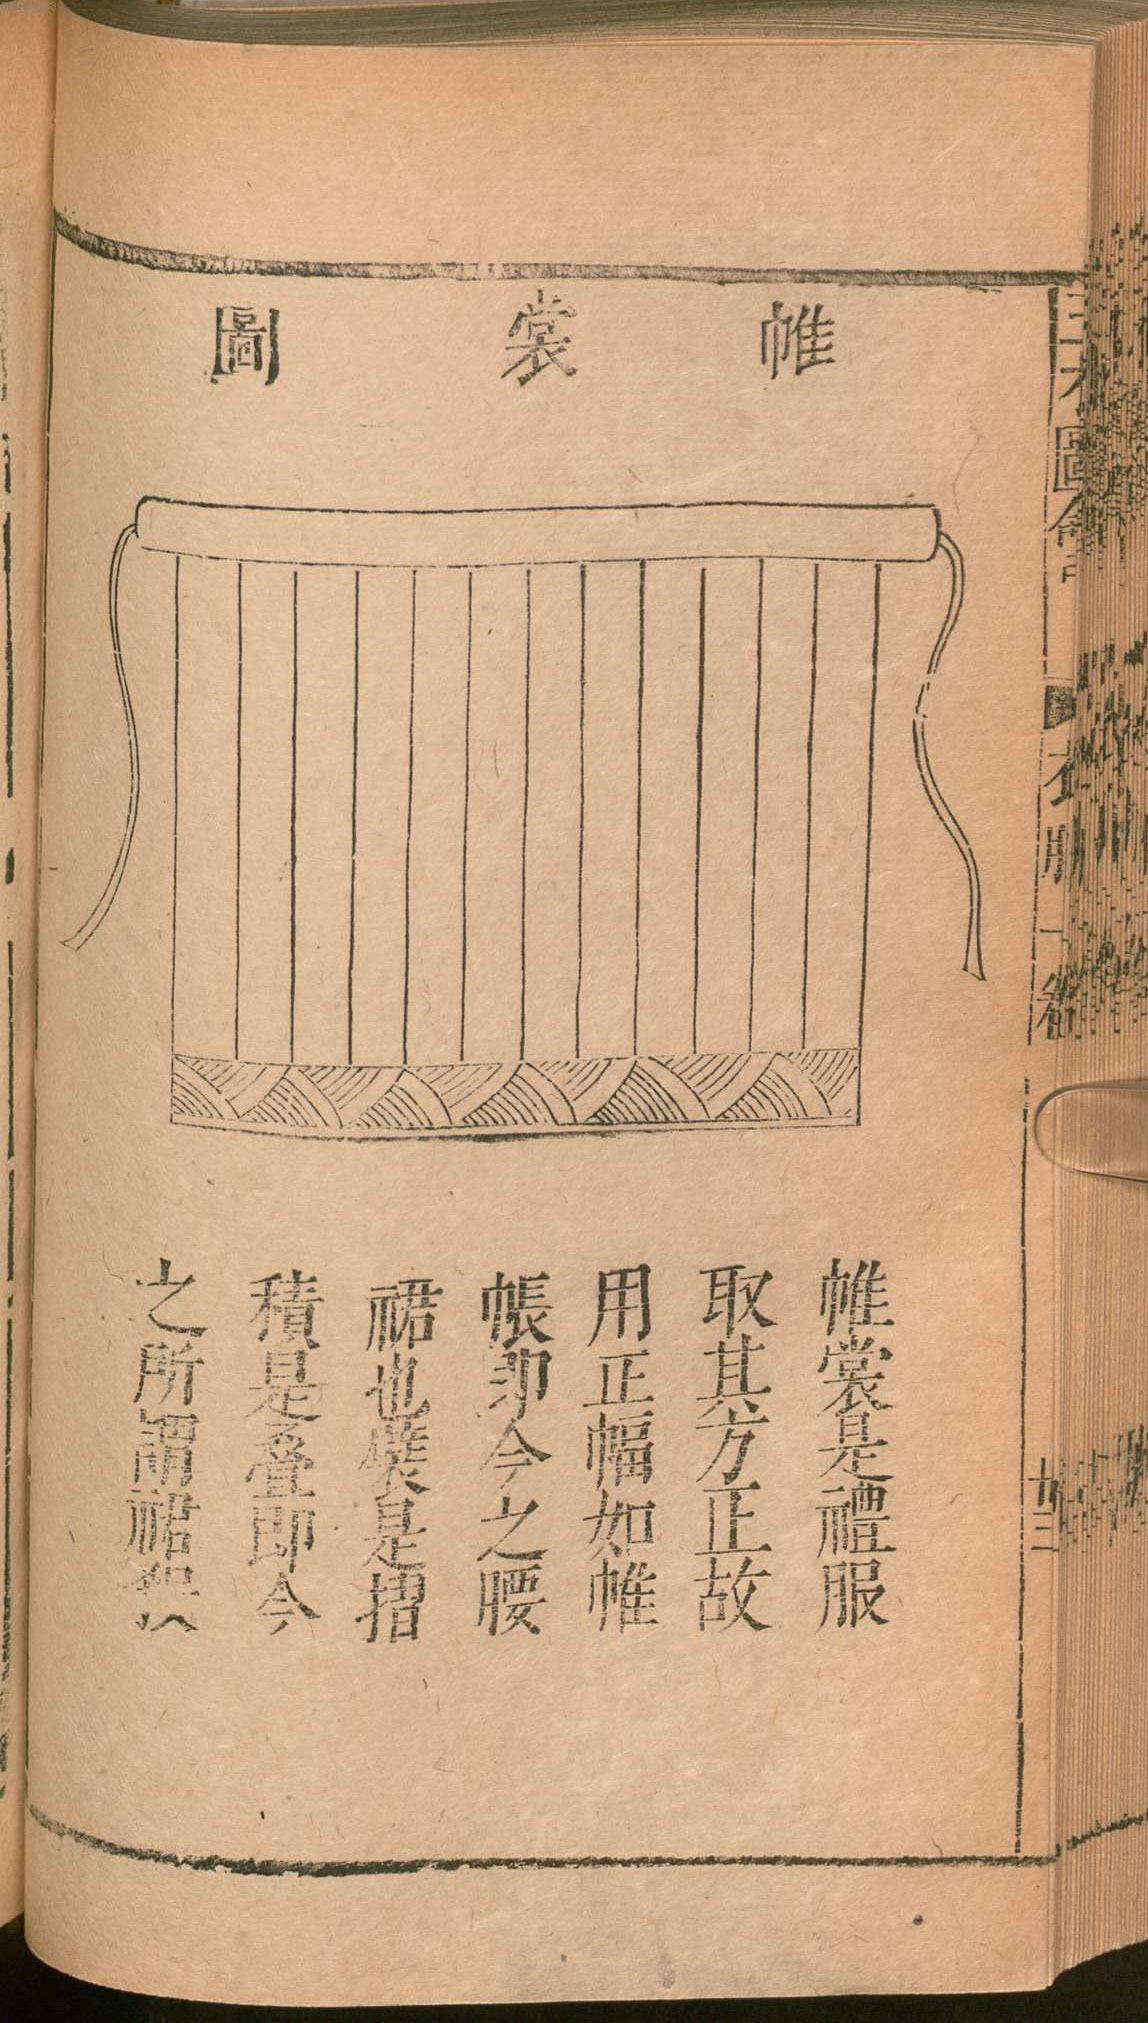 帷裳圖
帷裳是禮服
取其方正故
用正幅如帷
帳即今之腰
裙也襞是摺
積是疊即今
之所謂裙
圖會
衣服一卷